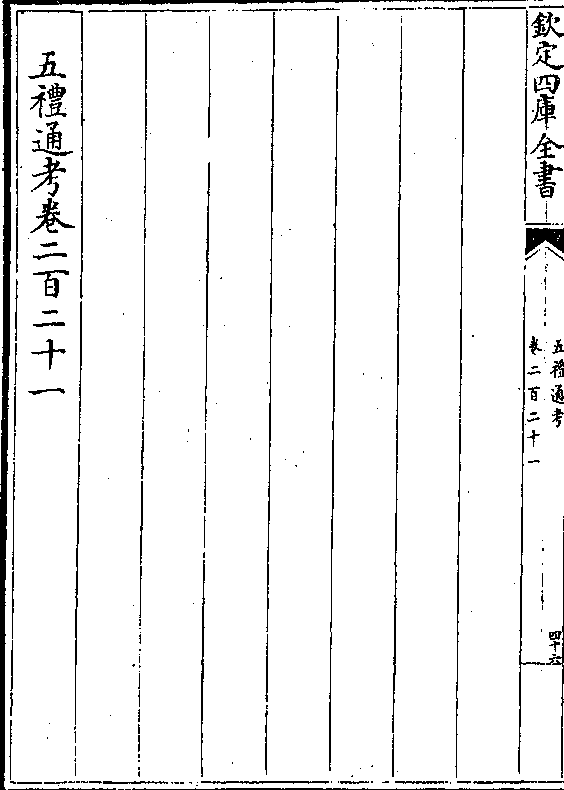 欽定四庫全書
五禮通考
卷二百二十一
四十六
五禮通考卷二百二十一